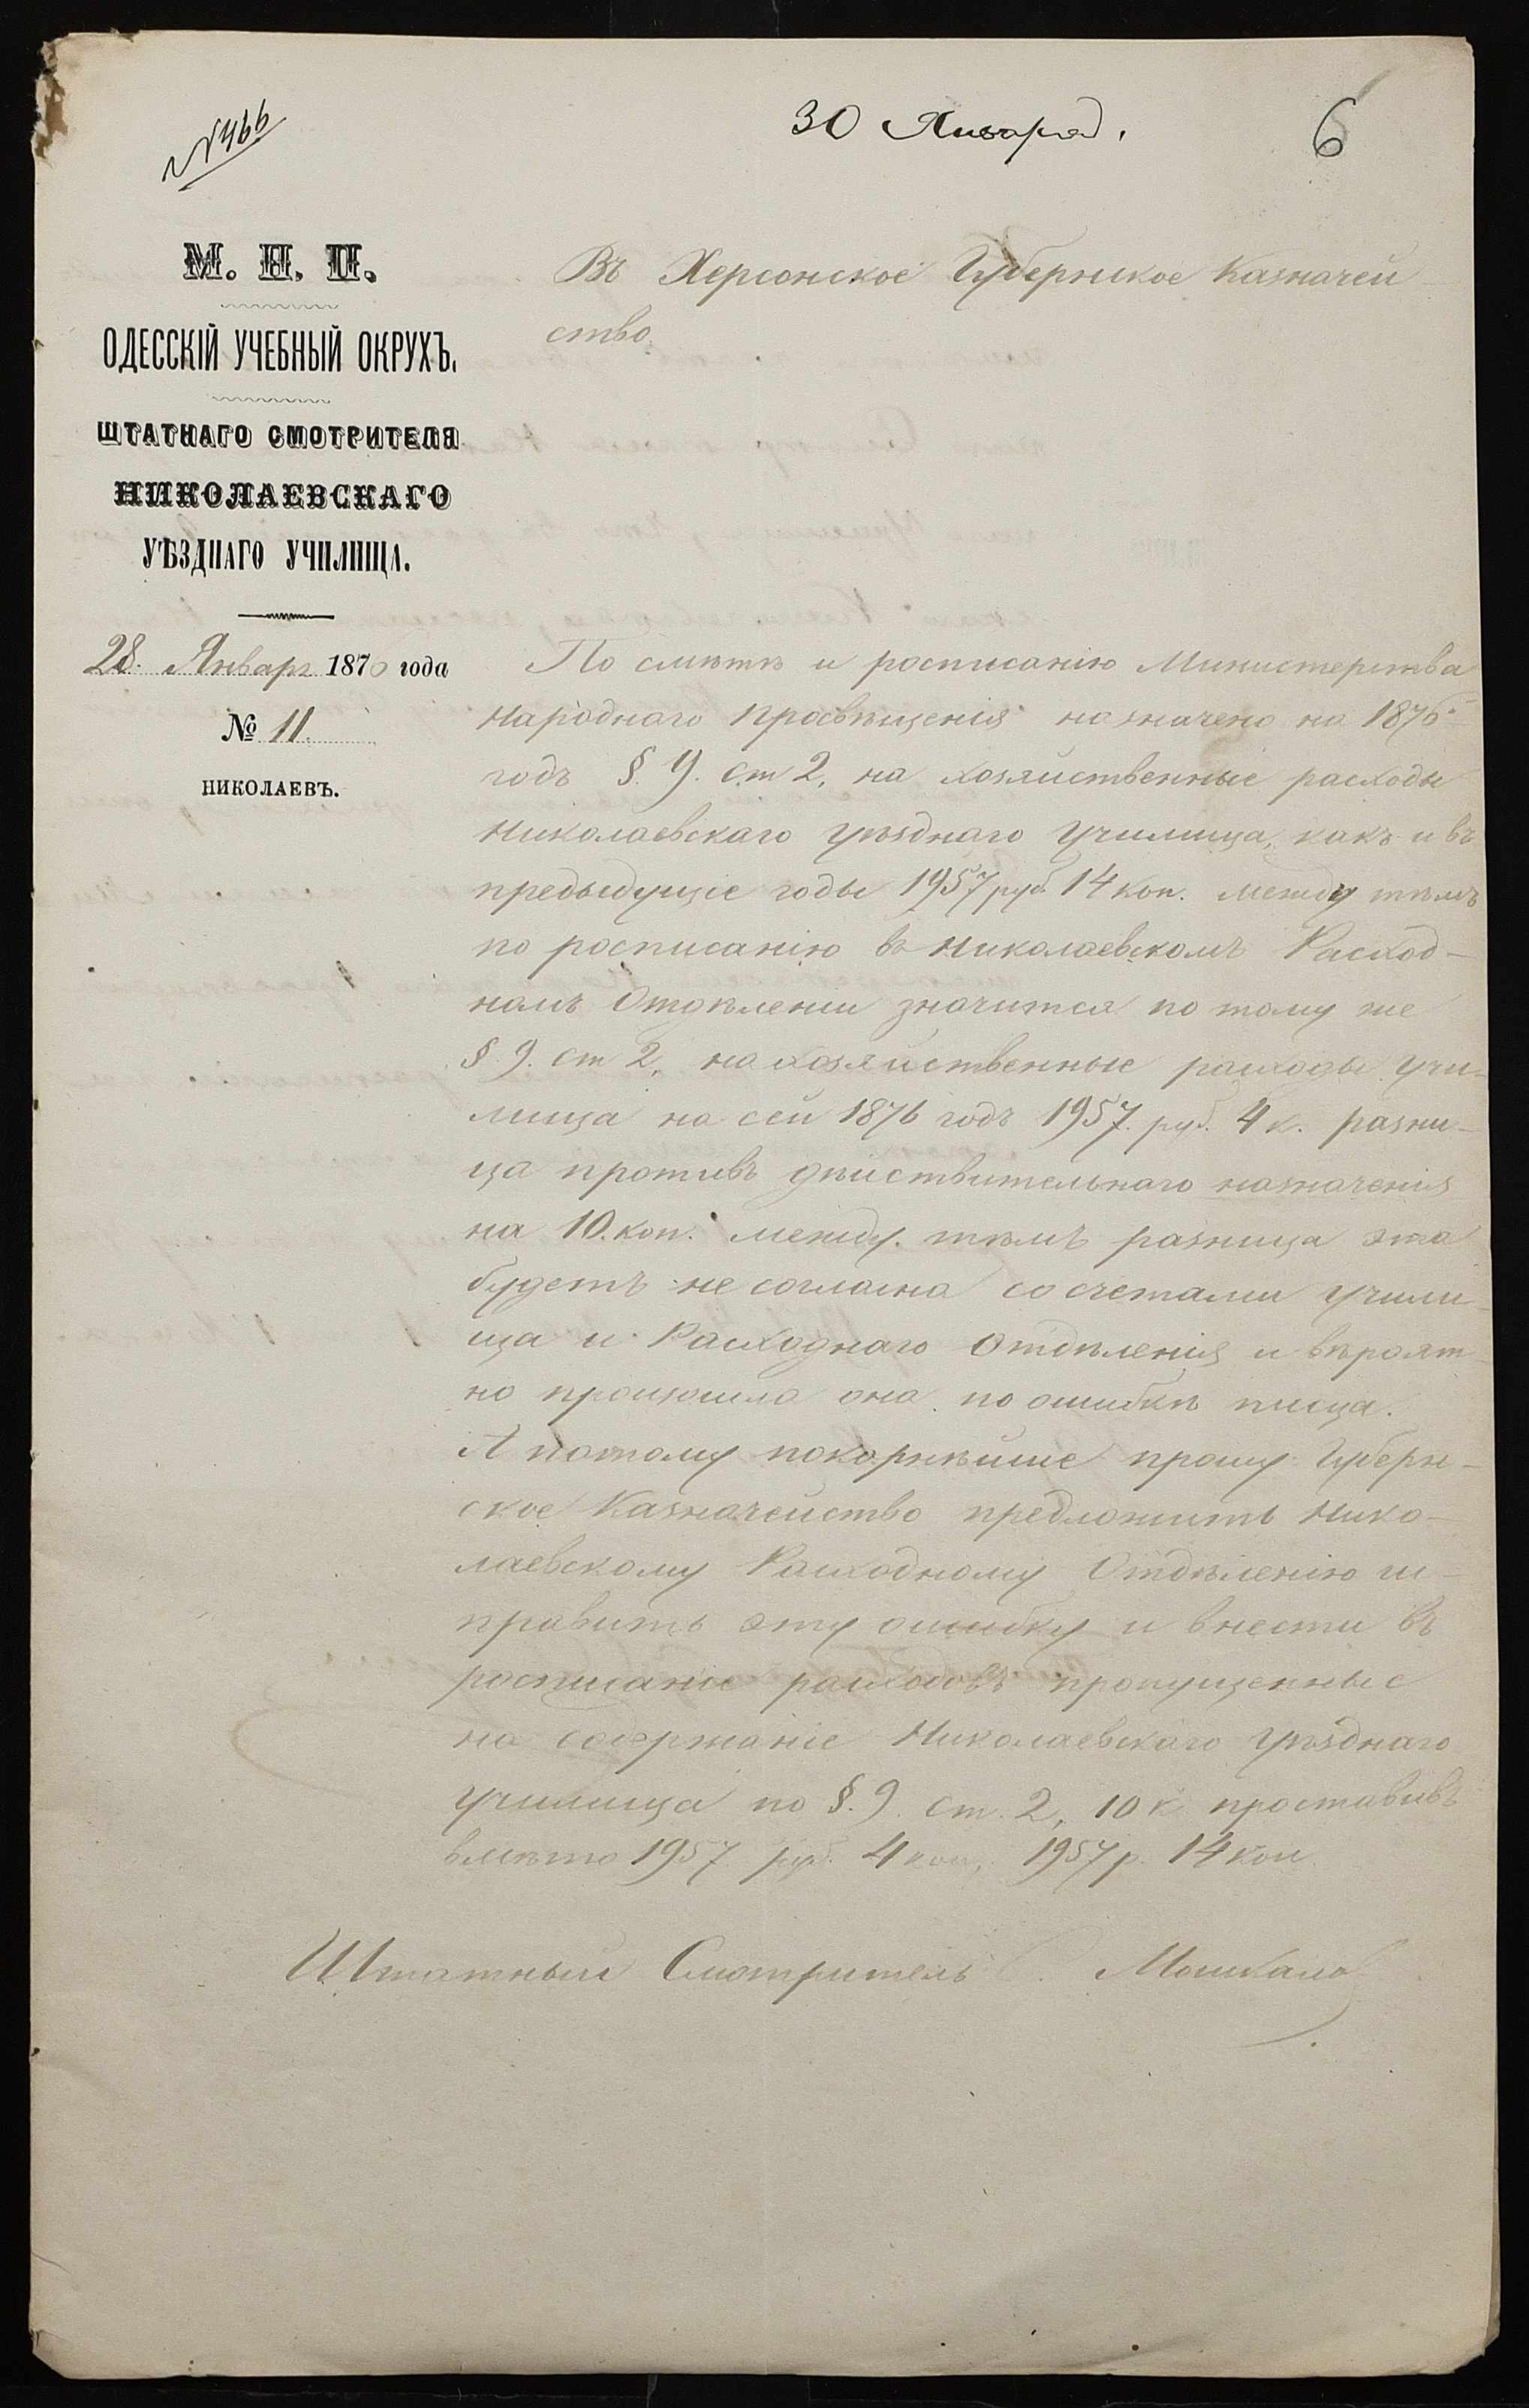 №466
30 Января.
6
М. Н. П.
ОДЕССКІЙ УЧЕБНЫЙ ОКРУХЪ.
ШТАТНАГО СМОТРИТЕЛЯ
НИКОЛАЕВСКАГО
УѢЗДНАГО УЧИЛИЩА.
28. Январь 1876 года
№ 11.
НИКОЛАЕВЪ.
Въ Херсонское Губернское Казначей
ство.
По смѣтѣ и росписанію Министерства
Народнаго Просвѣщенія назначено на 1876
годъ §. 9. ст 2, на хозяйственные расходы
Николаевскаго Уѣзднаго Училища, какъ и въ
предыдущіе годы 1957 руб. 14 коп. между тѣмъ
по росписанію въ Николаевскомъ Расход-
номъ Отдѣленіи значится по тому же
§ 9. ст 2, на хозяйственные расходы учи-
лища на сей 1876 годъ 1957. руб. 4 к. разни-
ца противъ дѣйствительнаго назначенія
на 10. коп. между. тѣмъ разница эта
будетъ не согласна со счетами Учили-
ща и Расходнаго Отдѣленія и вѣроят-
но произошла она по ошибкѣ писца.
А потому покорнѣйше прошу Губерн-
ское Казначейство предложить Нико-
лаевскому Расходному Отдѣленію ис-
править эту ошибку и внести въ
росписаніе расходовъ пропущенные
на содержаніе Николаевскаго Уѣзднаго
Училища по §. 9. ст. 2, 10 к проставивъ
вмѣсто 1957 руб. 4 коп, 1957 р. 14 коп.
Штатный Смотритель Мошкалов